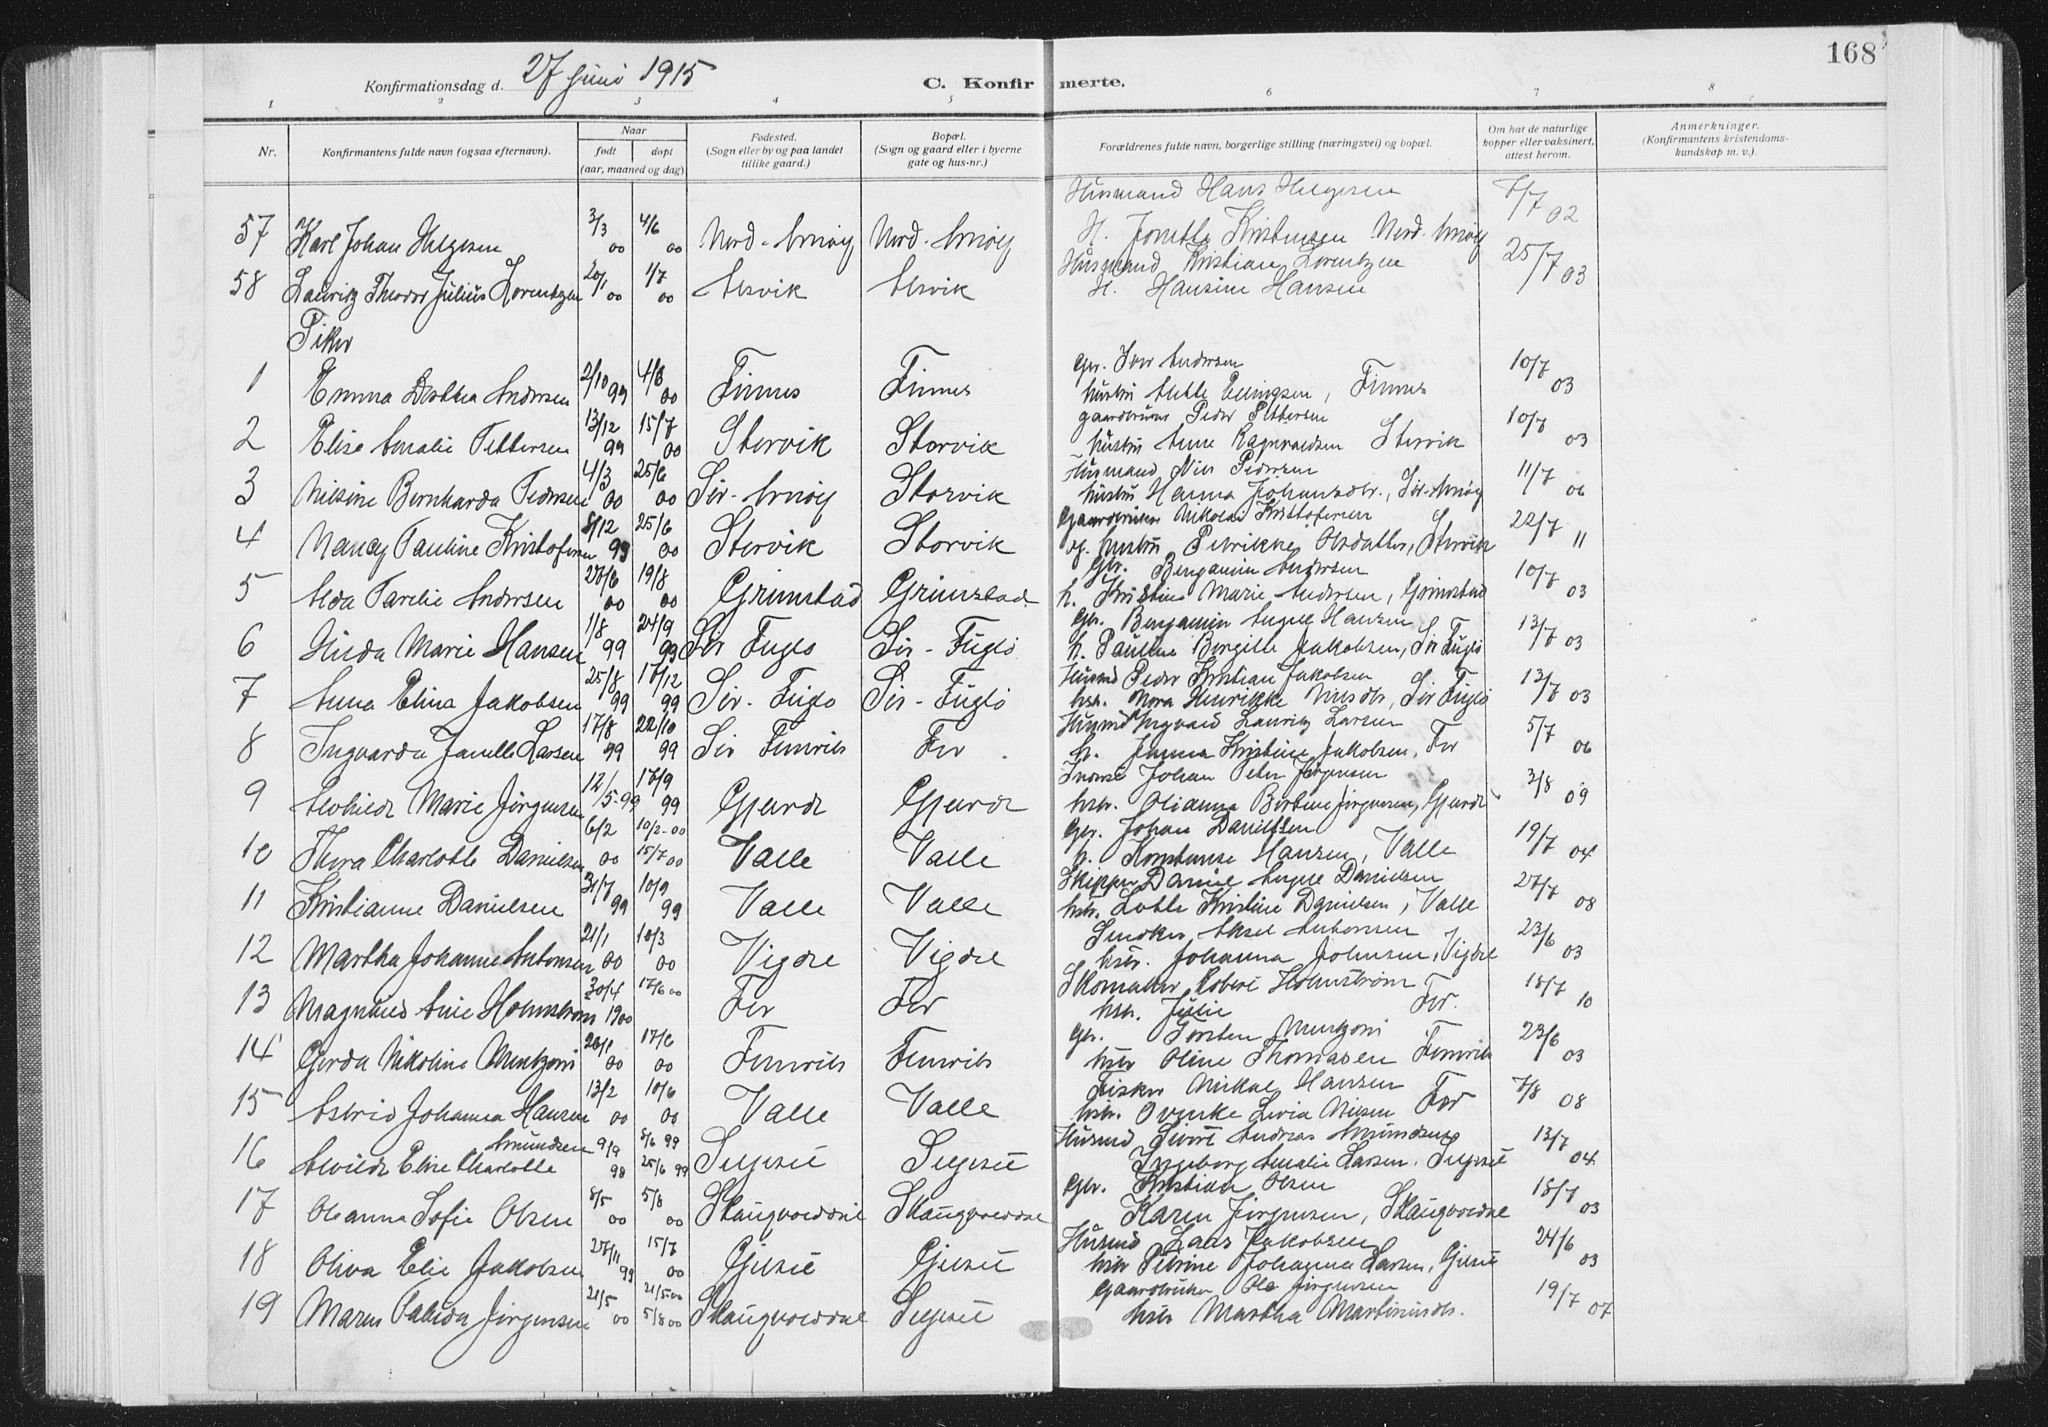 168
Konfirmationsdag d. 27 juni 1915
C. Konfirmerte.
1 2 3 4 5 6 7 8
Nr.
Konfirmantens fulde navn (ogsaa efternavn).
Naar
født
døpt
(aar, maaned og dag)
Fødested.
(Sogn eller by og paa landet
tillike gaard.)
Bopæl.
(Sogn og gaard eller i byerne
gate og hus-nr.)
Forældrenes fulde navn, borgerlige stilling (næringsvei) og bopæl.
Om hat de naturlige
kopper eller vaksinert,
attest herom.
Anmerkninger.
(Konfirmantens kristendoms-
kundskap m. v.).
Husmand Hans Helgesen
57 Karl Johan Helgesen 3/3 00 4/6 00 Nord-Arnøy Nord-Arnøy H. Jonette Kristensen Nord-Arnøy 02
Husmand Kristian Lorentzen
58 Lauritz Theodor Julius Lorentzen 20/1 00 1/7 00 Alsvik Alsvik H. Hansine Hansen 25/7 03
Piker
Gbr. Iver Andersen
1 Emma Dorthea Andersen 2/10 99 4/8 00 Finnes Finnes hustru Mette Ellingsen, Finnes 10/7 03
gaardbruker Peder Pettersen
2 Elise Amalie Pettersen 13/12 99 15/7 00 Storvik Storvik hustru Anne Ragnvaldsen Storvik 10/7 03
Husmand Nils Pedersen
3 Nilsine Bernharda Pedersen 4/3 00 25/6 00 Sør-Arnøy Storvik hustru Hanna Johansdtr., Sør-Arnøy 11/7 06
Gaardbruker Nikolai Kristofersen
4 Nancy Pauline Kristofersen 8/12 99 25/6 00 Storvik Storvik og hustru Petrikke Olsdatter, Storvik 22/7 11
Gbr. Benjamin Andersen
5 Alda Parelie Andersen 27/6 00 19/8 00 Grimstad Grimstad h. Kristine Marie Andersen, Grimstad 10/7 03
Gbr. Benjamin August Hansen
6 Hilda Marie Hansen 1/8 99 24/9 99 Sør Fuglø Sør-Fuglø h. Pauline Bergitte Jakobsen, Sør Fuglø 13/7 03
Husmd Peder Kristian Jakobsen
7 Anna Elina Jakobsen 25/8 99 17/12 99 Sør-Fuglø Sør-Fuglø hstr. Nora Henrikke Nilsdtr, Sør Fuglø 13/7 03
Husmd Ingvald Lauritz Larsen
8 Ingvarda Janette Larsen 17/8 99 22/10 99 Sør Femris For h. Janna Kristine Jakobsen, For 5/7 06
Inderst Johan Peter Jørgensen
9 Alvhilde Marie Jørgensen 12/5-99 17/9 99 Gjærde Gjærde hstr. Olianna Birtine Jørgensen, Gjærde 3/8 09
Gbr. Johan Danielsen
10 Thora Charlotte Danielsen 6/2 00 10/2-00 15/7 00 Valle Valle h. Konstanse Hansen, Valle 19/7 04
Skipper Daniel August Danielsen
11 Kristianne Danielsen 31/7 99 10/9 99 Valle Valle hstr. Lotte Kristine Danielsen, Valle 27/7 08
Snedker Aksel Antonsen
12 Martha Johanne Antonsen 21/1 00 10/3 00 Vigdel Vigdel hstr. Johanna Johnsen, Vigdel 23/6 03
Skomaker Robert Holmstrøm
13 Magnhild Anie Holmstrøm 30/4 1900 17/6 00 For For hstr. Julie For. 18/7 10
Gbr. Torsten Mentzoni
14 Gerda Nikoline Mentzoni 20/1 00 17/6 00 Femris Femris hstr Oline Thomasen Femris 23/6 03
Fisker Mikal Hansen
15 Astrid Johanna Hansen 13/2 00 10/6 00 Valle Valle hstr. Ovedie Livia Nilsen For 7/8 08
Husmd Sivert Andreas Amundsen
16 Alvilde Elise Charlotte Amundsen 9/9 98 8/6 99 25/6 99 Ingeborg Amalie Larsen. 13/7 04
Gbr. Kristian Olsen
17 Oleanna Sofie Olsen 8/5 00 5/8 00 Skaugvoldde Skaugvoldde Karen Jørgensen, Skaugvoldde 18/7 03
Husmd Lars Jakobsen
18 Oliva Elie Jakobsen 27/11 99 15/7 00 Gjeset Gjeset hstr Petrine Johanna Larsen, Gjeset 24/6 03
Gaardbruker Ole Jørgensen
19 Maren Palida Jørgensen 21/5 00 21/5 00 5/8 00 Skaugvoldde hstr Martha Martinusdtr. 19/7 07